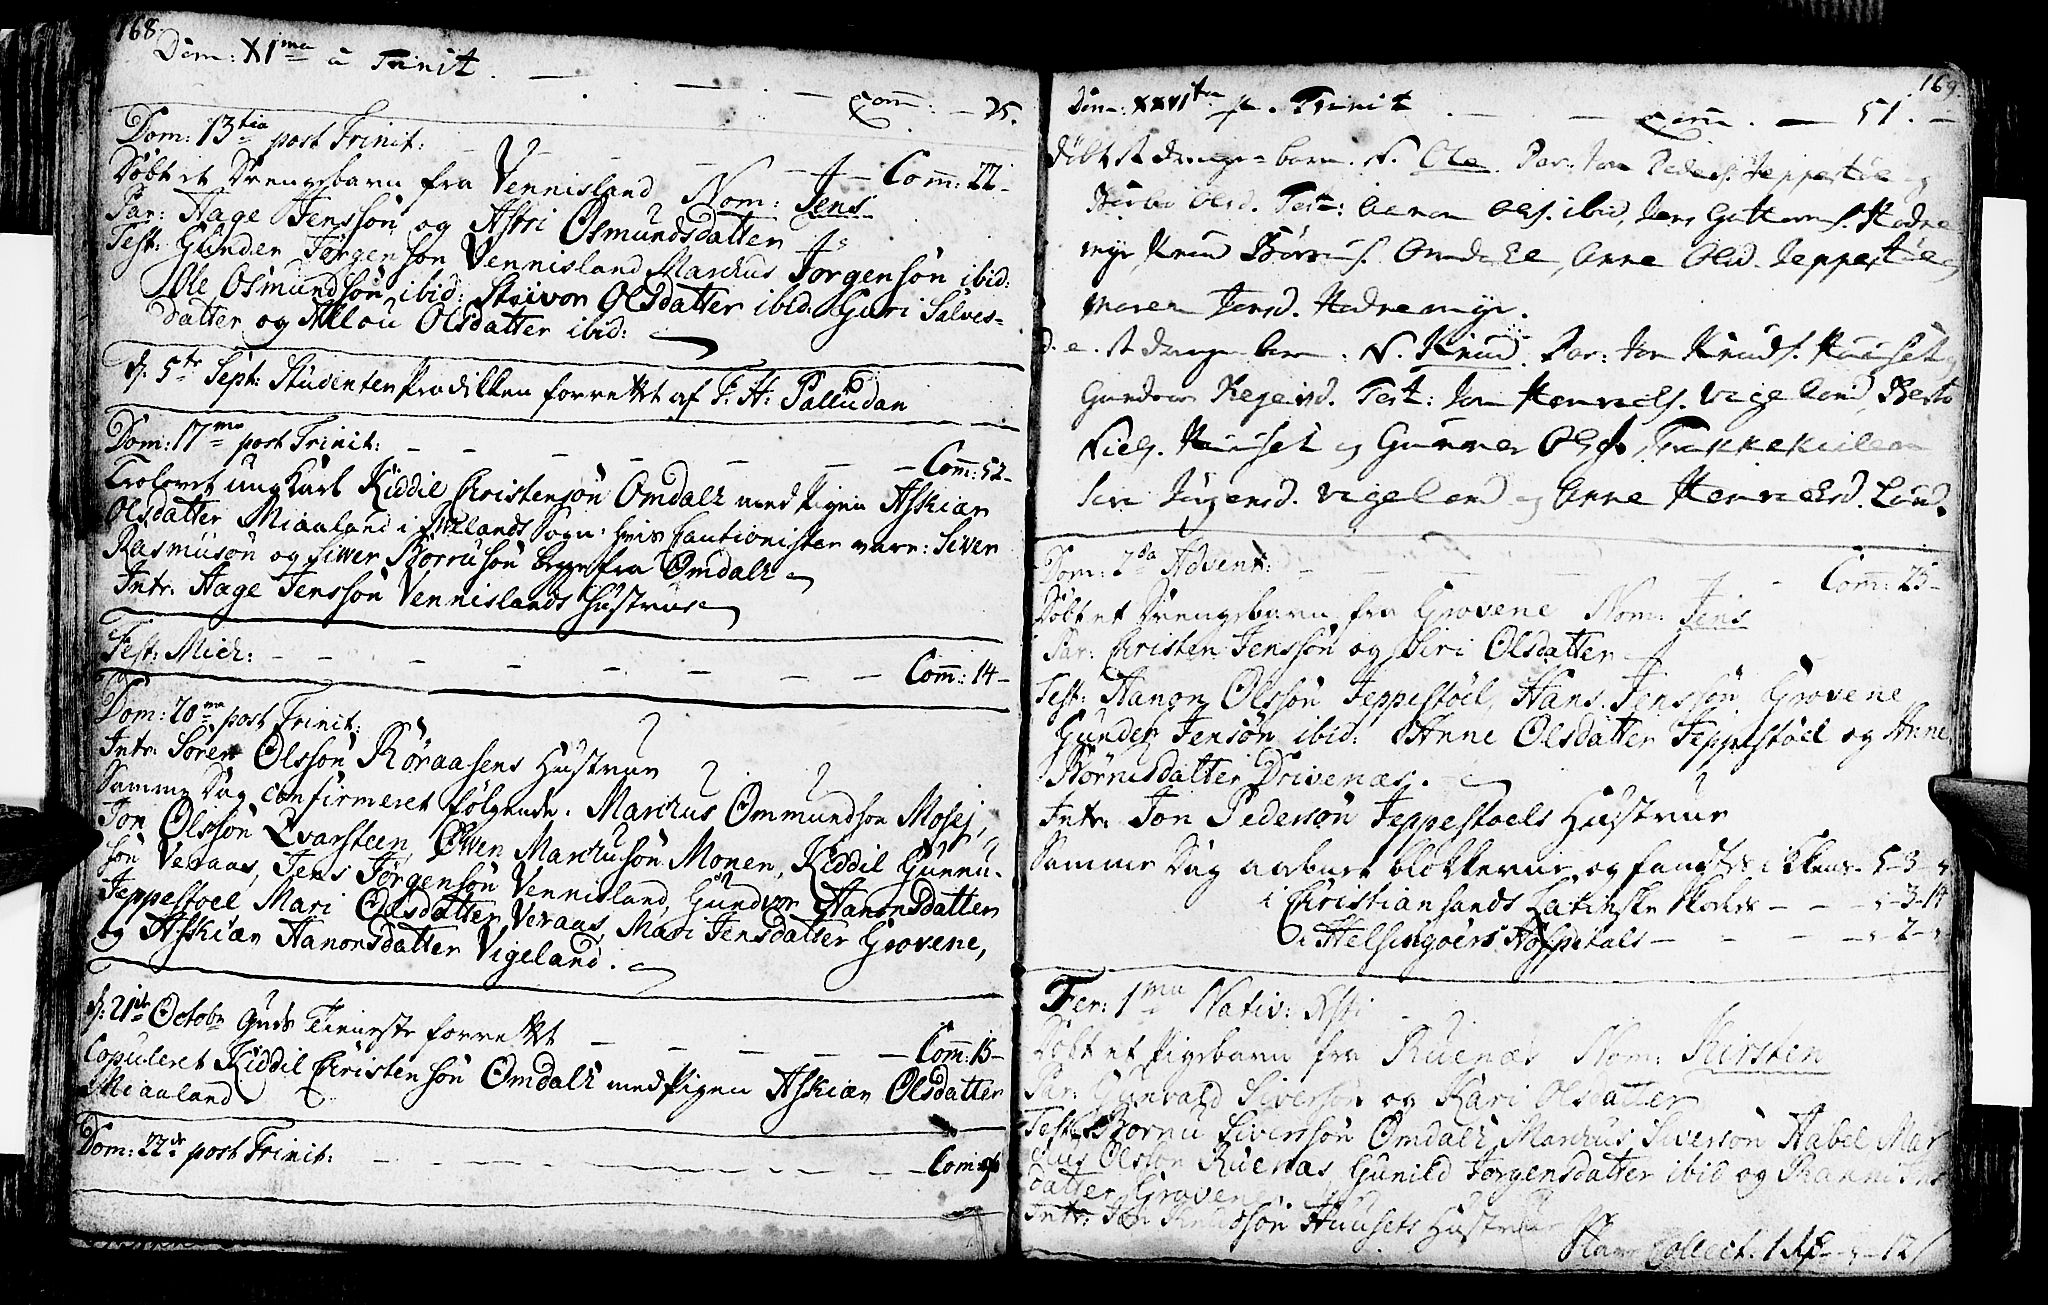 168
Dom: XI ma a Trinit. — — — Com: — 25.
Dom: 13 tia post Trinit: — — — Com: 22 —
Døbt et Drengebarn fra Vennisland Nom: Jens
Par: Aage Jenssøn og Astri Osmundsdatter
Test: Gunder Jørgensøn Vennisland Marckus Jørgensøn ibid:
Ole Osmundsøn ibid: Steivor Olsdatter ibid: Guri Salves-
datter og Allou Olsdatter ibid:
d. 5te Sept: Studenter Prædikken forrettet af F. H: Palludan
Dom: 17 ma post Trinit: — — — Com: 52 —
Trolovet ung Karl Kiddil Christensøn Omdalz med Pigen Askier
Olsdatter Miaaland i Sogn: hvis Cautionister vare: Siver
Rasmusøn og Siwer Børrusøn begge fra Omdalz
Intr. Aage Jenssøn Vennislands Hustrue
Fest: Mich: — — — Com: 14 —
Dom: 20 ma post Trinit:
Intr: Søren Olssøn Røraasens Hustrue
Samme Dag confirmeret følgende: Marckus Ommundsøn Mosej,
Jon Olssøn Qvarsteen, Øwen Marckusøn Monen, Kiddil Gunnu-
søn Veraas, Jens Jørgensøn Vennisland, Gundvor Hanonsdatter
Jeppestoel Mari Olsdatter Veraas, Mari Jensdatter Grovene,
og Askier Hanonsdatter Vigeland.
d: 21de Octobr Guds Tieneste forrettet — — — Com: 15 —
Copuleret Kiddil Christensøn Omdalz med Pigen Askier Olsdatter
Miaaland
Dom: 22de post Trinit: — — — Com:
169
Dom: XXVI ta p. Trinit — — Com. — 51. —
Døbt et drenge-barn. N. Ole. Par: Jon Peders. Jeppestøe og
Olsd. Test: Hanon Ols. ibid, Jens Guttorms. Hadne
myr, Knud Børrus. Omdale, Anne Olsd. Jeppestøe og
Maren Jensd. Hadnemyr.
d. e. et drenge barn: N. Knud. Par: Jon Knuds. Huuset og
Gundvor Test: Jon Henrichs. Vigeland,
Niels. Huuset og Gunner Ols. Trakkekileen
Siri Jørgensd. Vigeland og Anne Henrichsd. Lund.
Dom: 2da Advent: — — — Com: 25 —
Døbt et Drengebarn fra Grovene Nom: Jens
Par: Christen Jenssøn og Siri Olsdatter
Test: Hanon Olssøn Jeppestøel, Hans Jenssøn Grovene
Gunder Jensøn ibid: Anne Olsdatter Jeppestøel og Anne
Børnisdatter Drivenæs.
Intr: Jon Pedersøn Jeppestoels Hustrue
Samme Dag aabnet blokkerne og fandtes i Kirkens - 5-3-
i Christiansands Latinske Skoles — — — -3-14
i Helsingøers Hospitals — — — — 2 —
Fer: 1 ma Nativ: Xsti
Døbt et Pigebarn fra Ruenæs Nom: Kirsten
Par: Gunvald Siversøn og Kari Olsdatter
Test: Børru Siversøn Omdalz, Marckus Siversøn Aabel Mar
ckus Olssøn Ruenæs, Gunild Jørgensdatter ibid og
datter Grovene
Intr: Jon Knudsøn Huusets Hustrue
Collect: 1 12